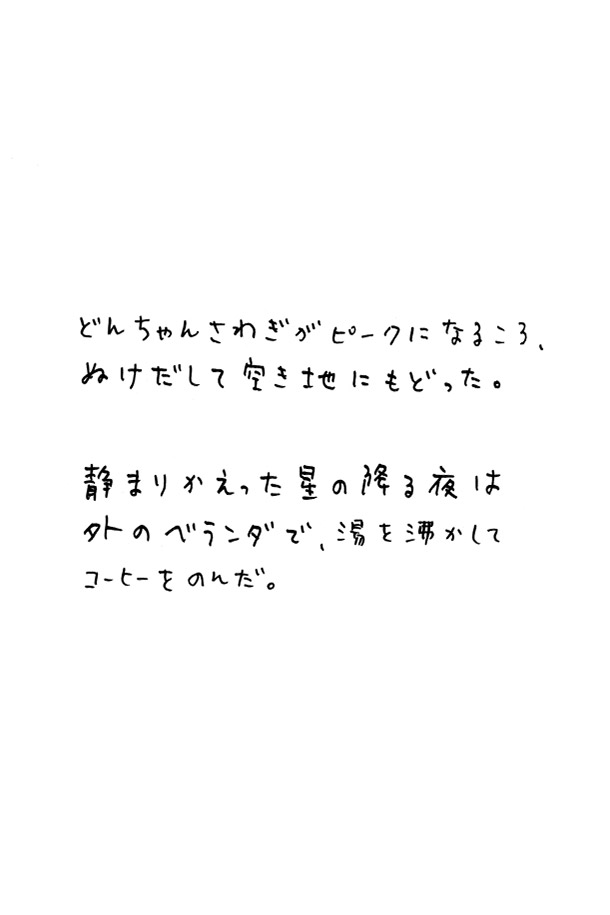 どんちゃんさわぎがピークになるころ、
ぬけだして空き地にもどった。
静まりかえった星の降る夜は
外のベランダで、湯を沸かして
コーヒーをのんだ。